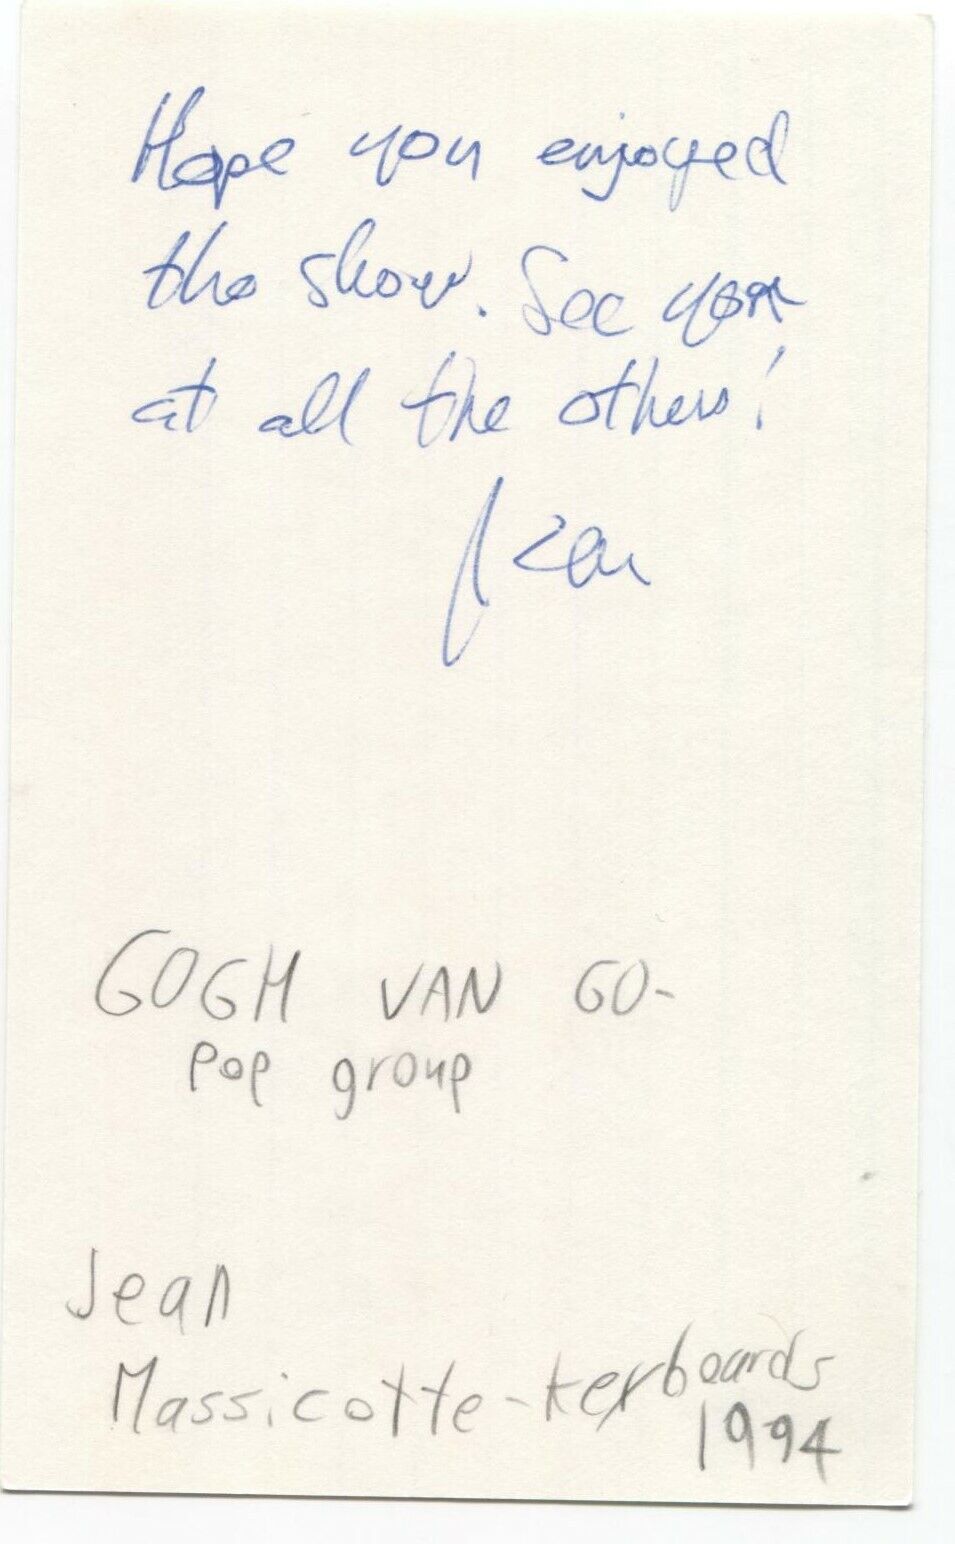 Hope you enjoyed
the show. See you
at all the others!
Jean
GOGH VAN GO-
pop group
Jean
Massicotte-keyboards
1994